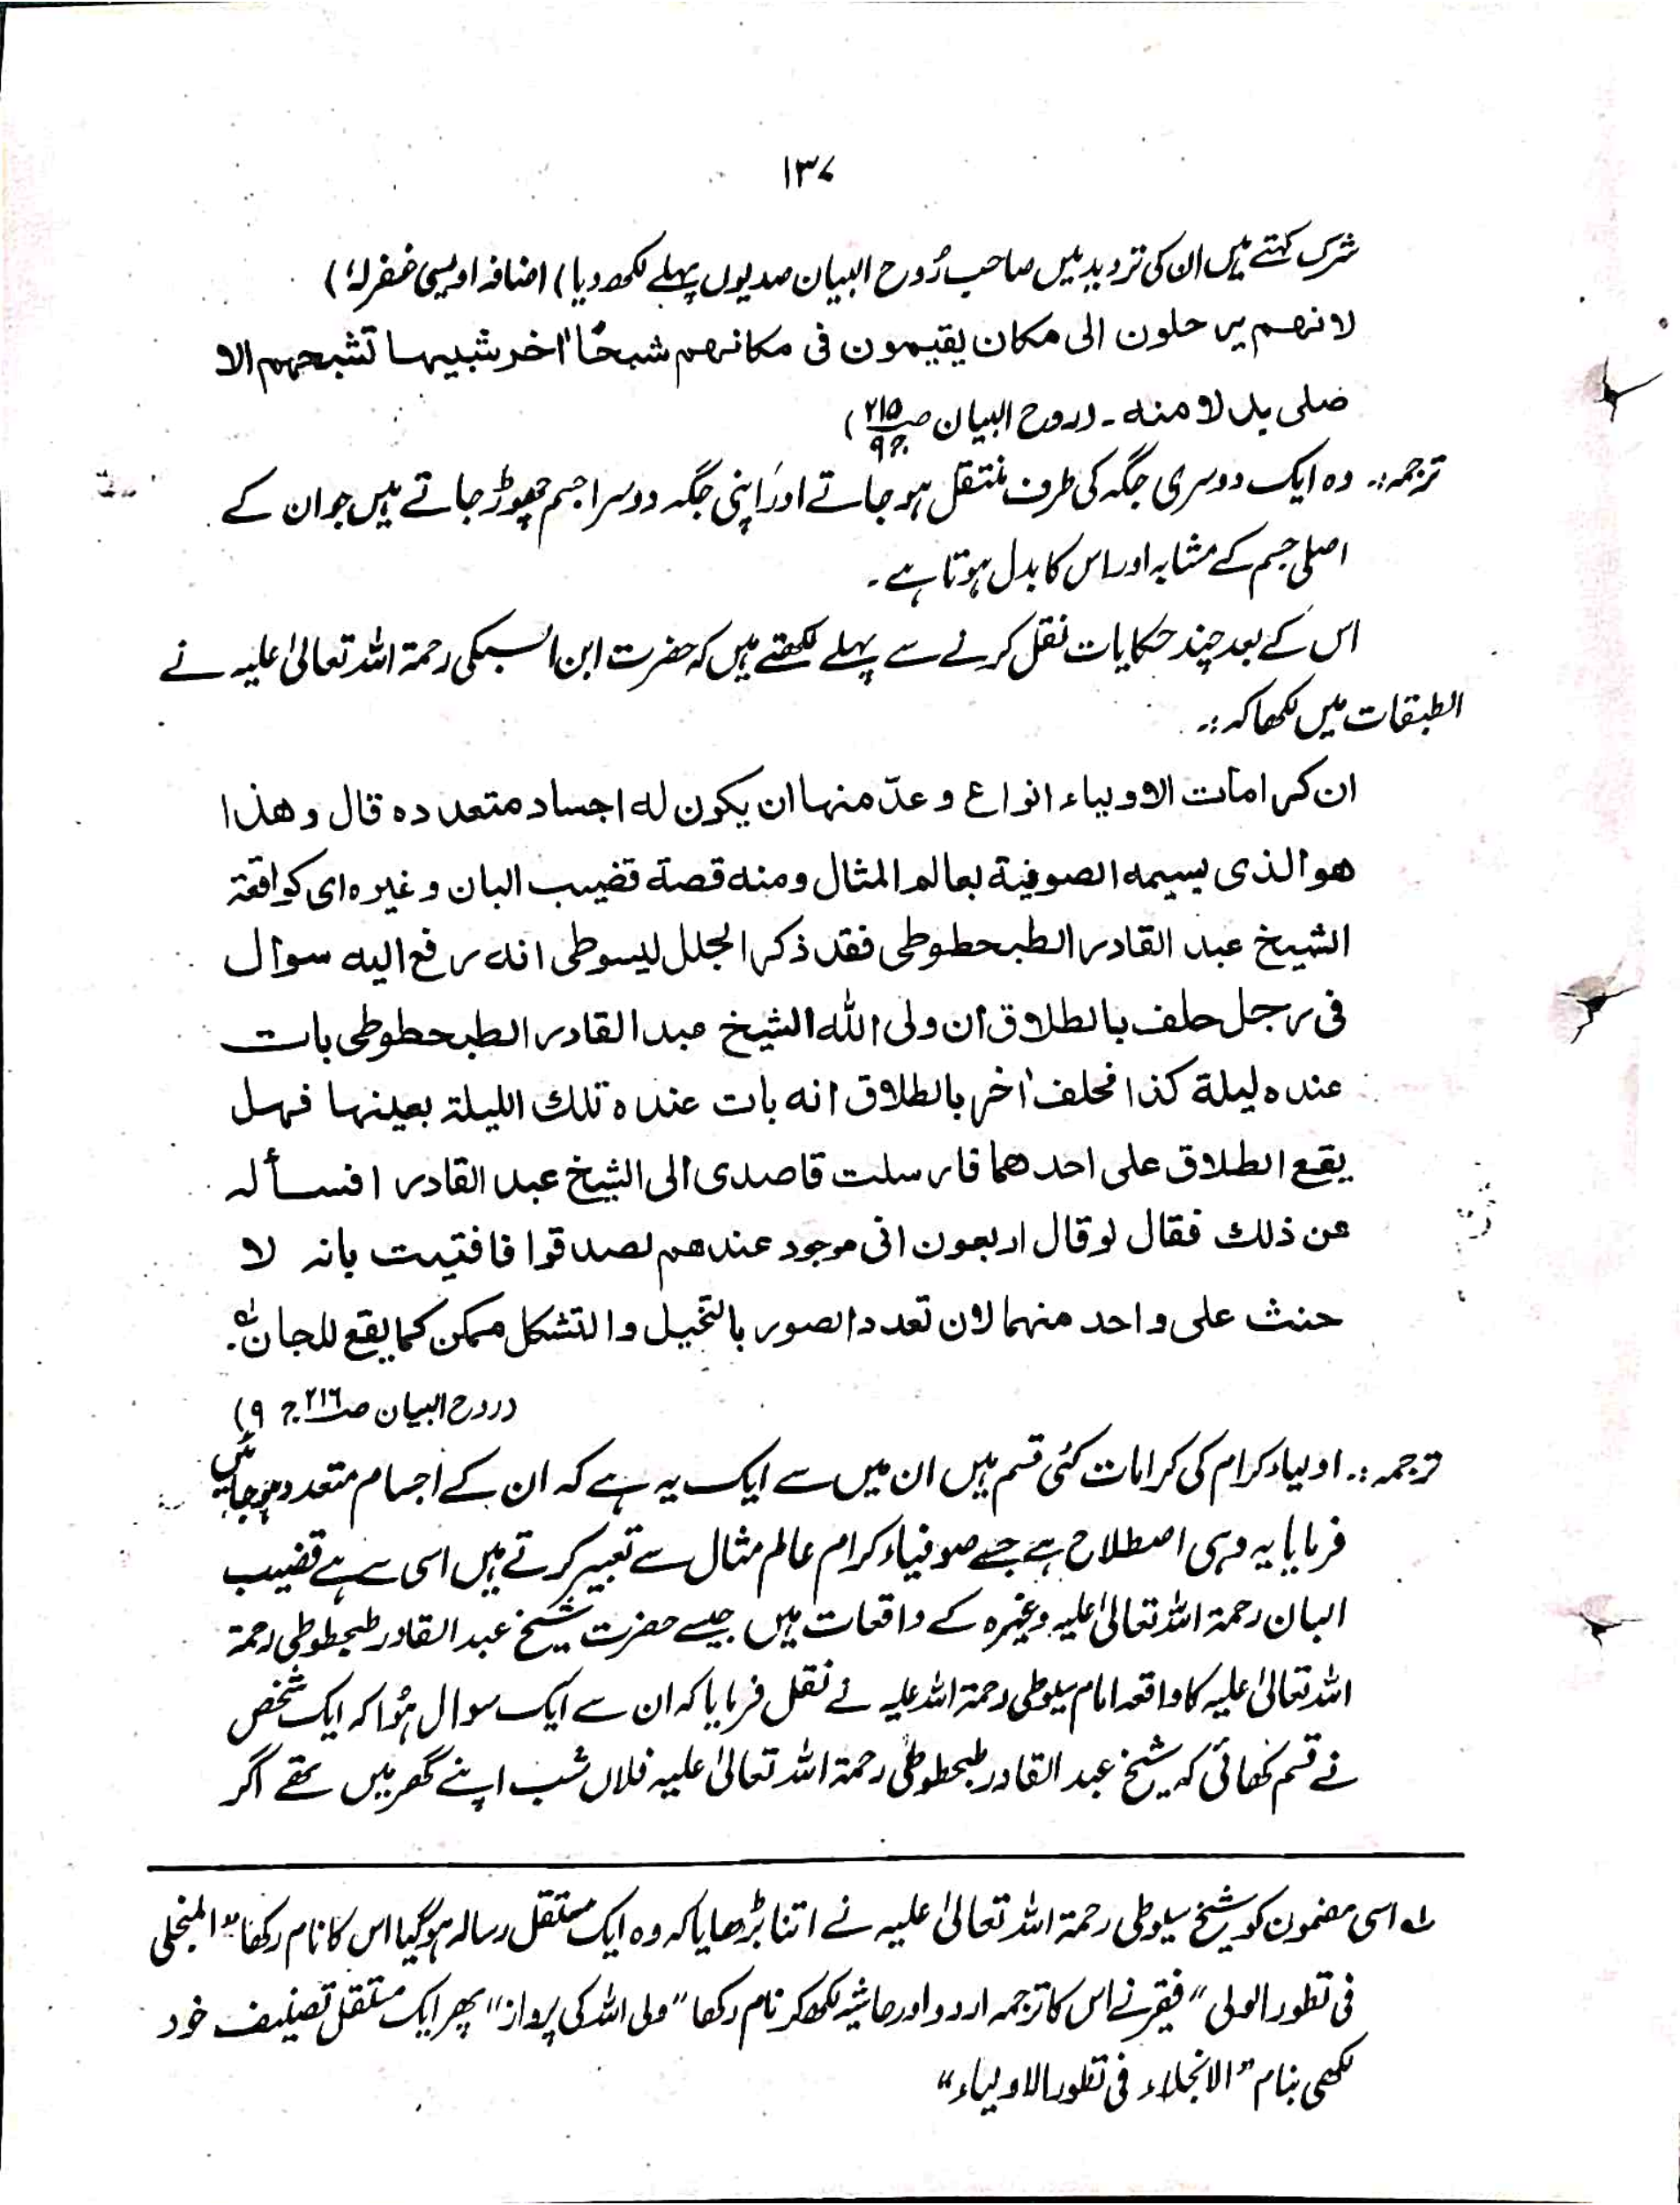 ۱۳۷
شرک کہتے ہیں ان کی تردید میں صاحب رُوح البیان صدیوں پہلے لکھ دیا) (اضافہ اویسی غفرلہٗ)
لانهم یرحلون الی مکان یقیمون فی مکانهم شبحًا اٰخر شبیها تشبحهم الا
ضلی بدلا منه ۔ (روح البیان صـ ۲۱۵ ج ۹)
ترجمہ :۔ وہ ایک دوسری جگہ کی طرف منتقل ہو جاتے اور اپنی جگہ دوسرا جسم چھوڑ جاتے ہیں جو ان کے
اصلی جسم کے مشابہ اور اس کا بدل ہوتا ہے ۔
اس کے بعد چند حکایات نقل کرنے سے پہلے لکھتے ہیں کہ حضرت ابن السبکی رحمۃ اللہ تعالیٰ علیہ نے
الطبقات میں لکھا کہ :۔
ان کرامات الاولیاء انواع و عدّ منها ان یکون له اجساد متعدده قال و هذا
هو الذی یسیمه الصوفیة بعالم المثال و منه قصة قضیب البان و غیره ای کواقعة
الشیخ عبد القادر الطبحطوطی فقد ذکر الجلل لیسوطی انه رفع الیه سوال
فی رجل حلف بالطلاق ان ولی الله الشیخ عبد القادر الطبحطوطی بات
عنده لیلة کذا فحلف اٰخر بالطلاق انه بات عنده تلك اللیلة بعینها فهل
یقع الطلاق علی احدهما فارسلت قاصدی الی الشیخ عبد القادر افسأله
من ذلك فقال لو قال اربعون انی موجود عندهم لصدقوا فافتیت بانه لا
حنث علی واحد منهما لان تعدد الصور بالتخیل و التشکل ممکن کما یقع للجان لہ ۔
(روح البیان صـ ۲۱۶ ج ۹)
ترجمہ :۔ اولیاء کرام کی کرامات کئی قسم ہیں ان میں سے ایک یہ ہے کہ ان کے اجسام متعدد ہو جائیں
فرمایا یہ وہی اصطلاح ہے جسے صوفیاء کرام عالم مثال سے تعبیر کرتے ہیں اسی سے ہے قضیب
البان رحمۃ اللہ تعالیٰ علیہ وغیرہ کے واقعات ہیں جیسے حضرت شیخ عبد القادر طبحطوطی رحمۃ
اللہ تعالیٰ علیہ کا واقعہ امام سیوطی رحمۃ اللہ علیہ نے نقل فرمایا کہ ان سے ایک سوال ہُوا کہ ایک شخص
نے قسم کھائی کہ شیخ عبد القادر طبحطوطی رحمۃ اللہ تعالیٰ علیہ فلاں شب اپنے گھر میں تھے اگر
لہ اسی مضمون کو شیخ سیوطی رحمۃ اللہ تعالیٰ علیہ نے اتنا بڑھایا کہ وہ ایک مستقل رسالہ ہو گیا اس کا نام رکھا "المنجلی
فی تطور الولی" فقیر نے اس کا ترجمہ اردو اور حاشیہ لکھ کر نام رکھا "ولی اللہ کی پرواز" پھر ایک مستقل تصنیف خود
لکھی بنام "الانجلاء فی تطور الاولیاء"